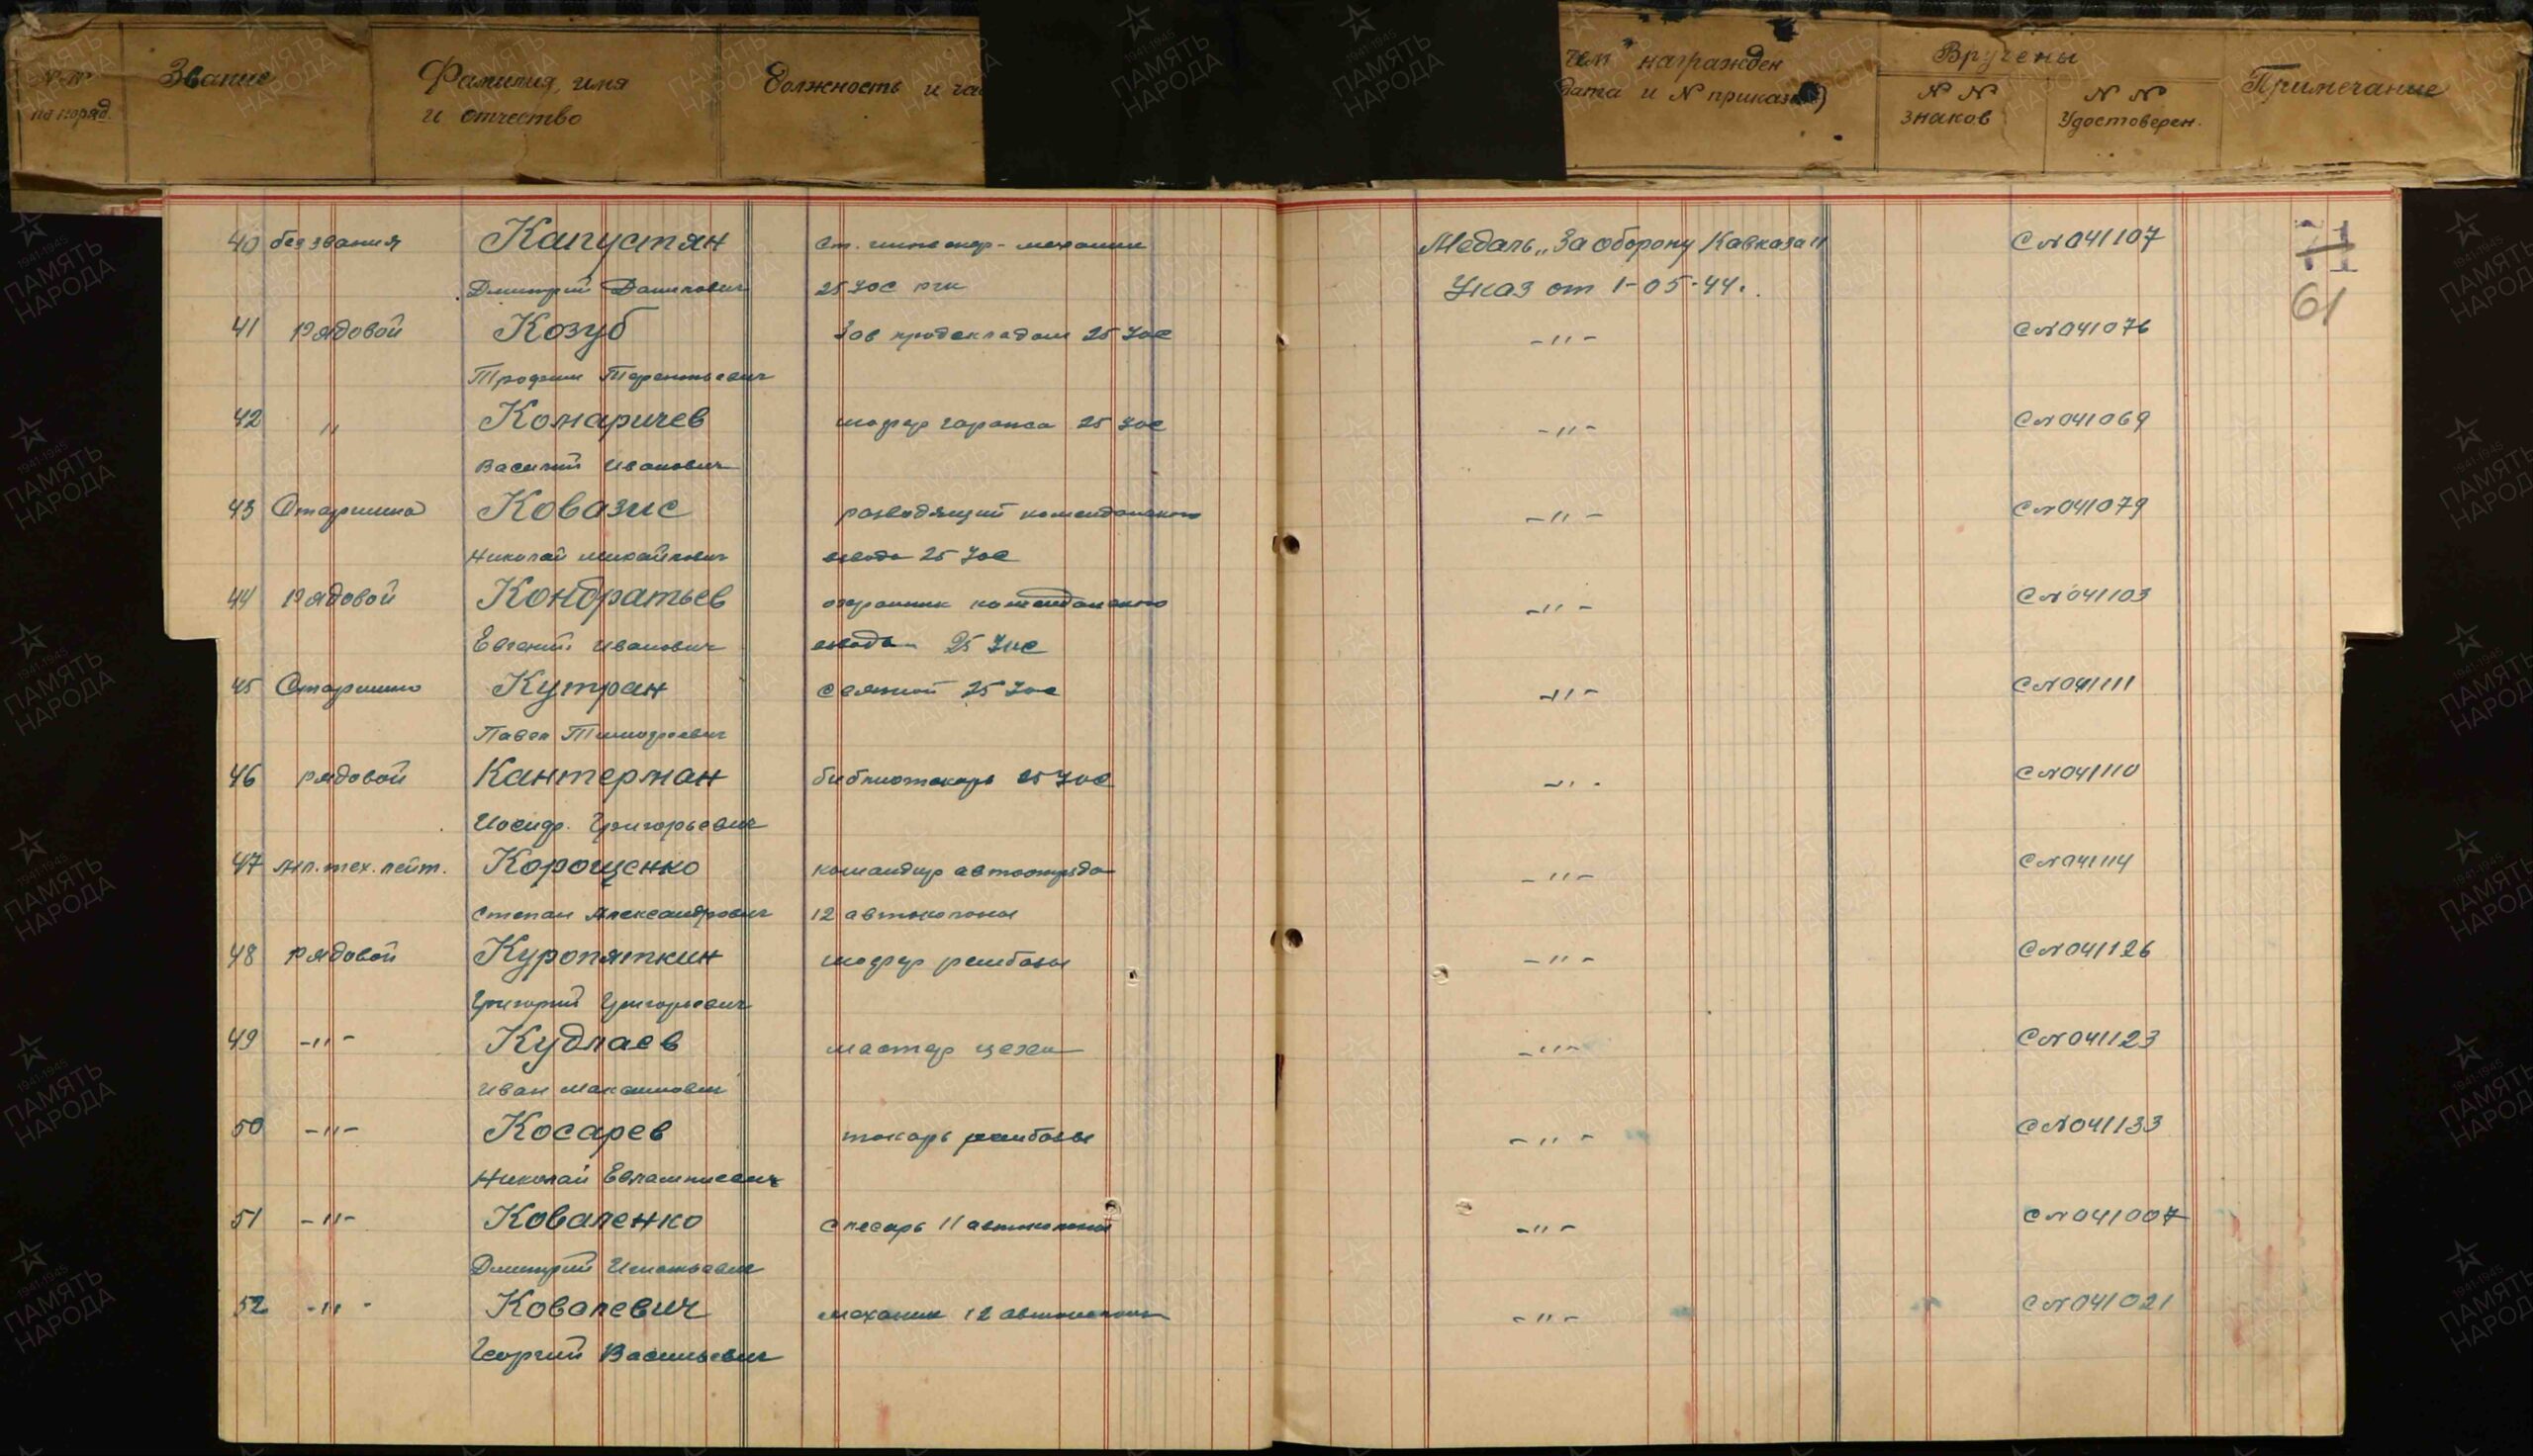 № №
по поряд.
Звание
Фамилия, имя
и отчество
Должность и ча
чем награжден
дата и № приказа)
Вручены
№ №
знаков
№ №
Удостоверен.
Примечание
40 без звания Капустян Ст. инженер-механик Медаль „За оборону Кавказа" С№041107 71
Дмитрий Данилович 25 УОС РГК Указ от 1-05-44. 61
41 Рядовой Козуб Зав продскладом 25 УОС -"- С№041076
Трофим Терентьевич
42 " Комаричев шофер гаража 25 УОС -"- С№041069
Василий Иванович
43 Старшина Ковазис разводящий комендантского -"- С№041079
Николай Михайлович взвода 25 УОС
44 Рядовой Кондратьев охранник комендантского -"- С№041103
Евгений Иванович взвода 25 УОС
45 Старшина Кутран связной 25 УОС -"- С№041111
Павел Тимофеевич
46 рядовой Кантерман библиотекарь 25 УОС -"- С№041110
Иосиф Григорьевич
47 мл.тех.лейт. Корощенко командир автоотряда -"- С№041114
Степан Александрович 12 автоколоны
48 Рядовой Куропяткин шофер рембазы -"- С№041126
Григорий Григорьевич
49 -"- Кудлаев мастер цеха -"- С№041123
Иван Максимович
50 -"- Косарев токарь рембазы -"- С№041133
Николай Евлампиевич
51 -"- Коваленко слесарь 11 автоколоны -"- С№041007
Дмитрий Игнатьевич
52 -"- Ковалевич механик 12 автоколоны -"- С№041021
Георгий Васильевич